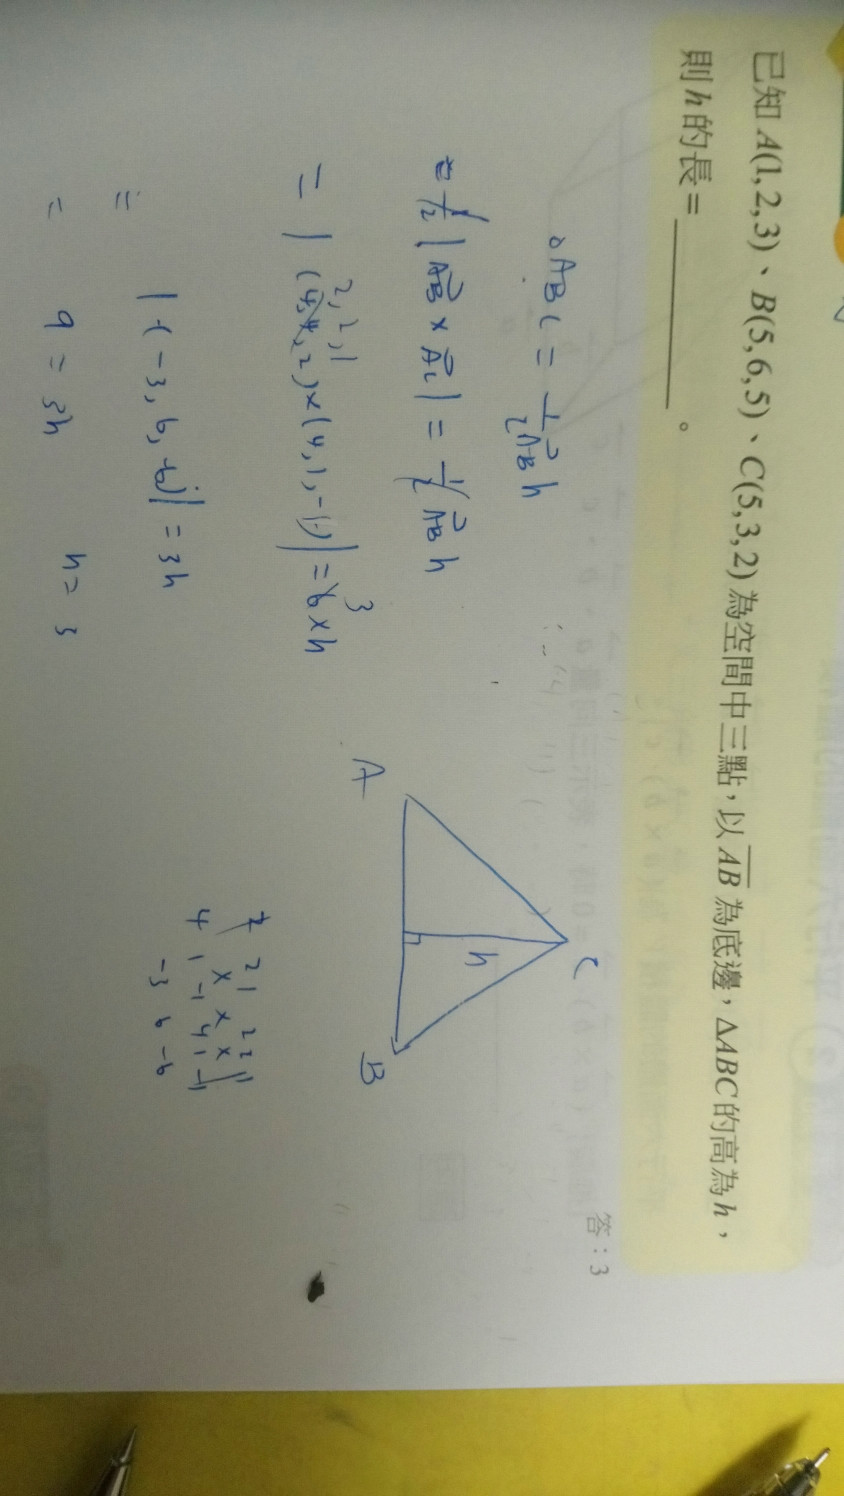 已知 A(1, 2, 3)、B(5, 6, 5)、C(5, 3, 2) 為空間中三點，以 AB 為底邊，ΔABC的高為 h，
則 h 的長 = ________。
答：3
ABC = 1/2 AB h
1/2 | AB × AC | = 1/2 AB h
2, 2, 1
= | (4, 4, 2) × (4, 1, -1) | = 6 × h
3
= | (-3, 6, -6) | = 3h
= 9 = 3h h = 3
A
B
C
h
2 2 1 2 2 1
4 1 -1 4 1 -1
-3 6 -6